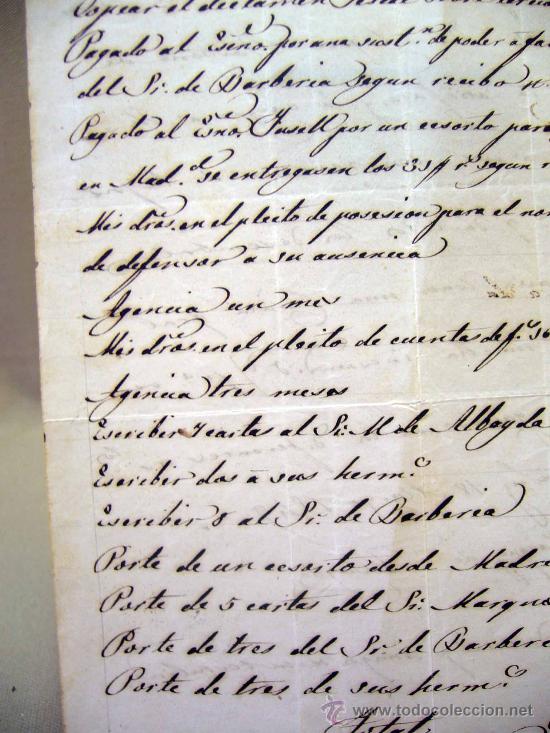 Copiar el dictamen
Pagado al Esño. por una sust.n de poder á fa
del Sr. de Barberia segun recibo n
Pagado al Esño. Fusell por un ecsorto para
en Mad.d se entregasen los 314 r.s segun r
Mis dros. en el pleito de posesion para el nom
de defensor a su ausenica
Agencia un mes
Mis dros. en el pleito de cuentas de f.s 36
Agencia tres meses
Escribir 7 cartas al Sr. M. de Albayda
Escribir dos a sus herm.s
Escribir 8 al Sr. de Barberia
Porte de un ecsorto desde Madri
Porte de 5 cartas del Sr. Marque
Porte de tres del Sr. de Barberi
Porte de tres de sus herm.s
Total
www.todocoleccion.net